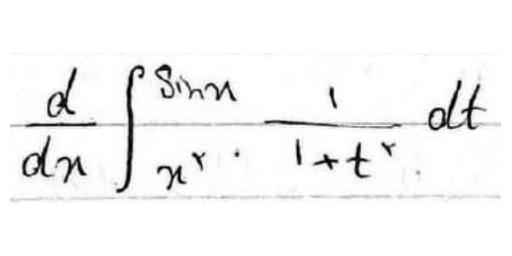 d/dx ∫_{x²}^{Sinx} 1/(1+t²) dt